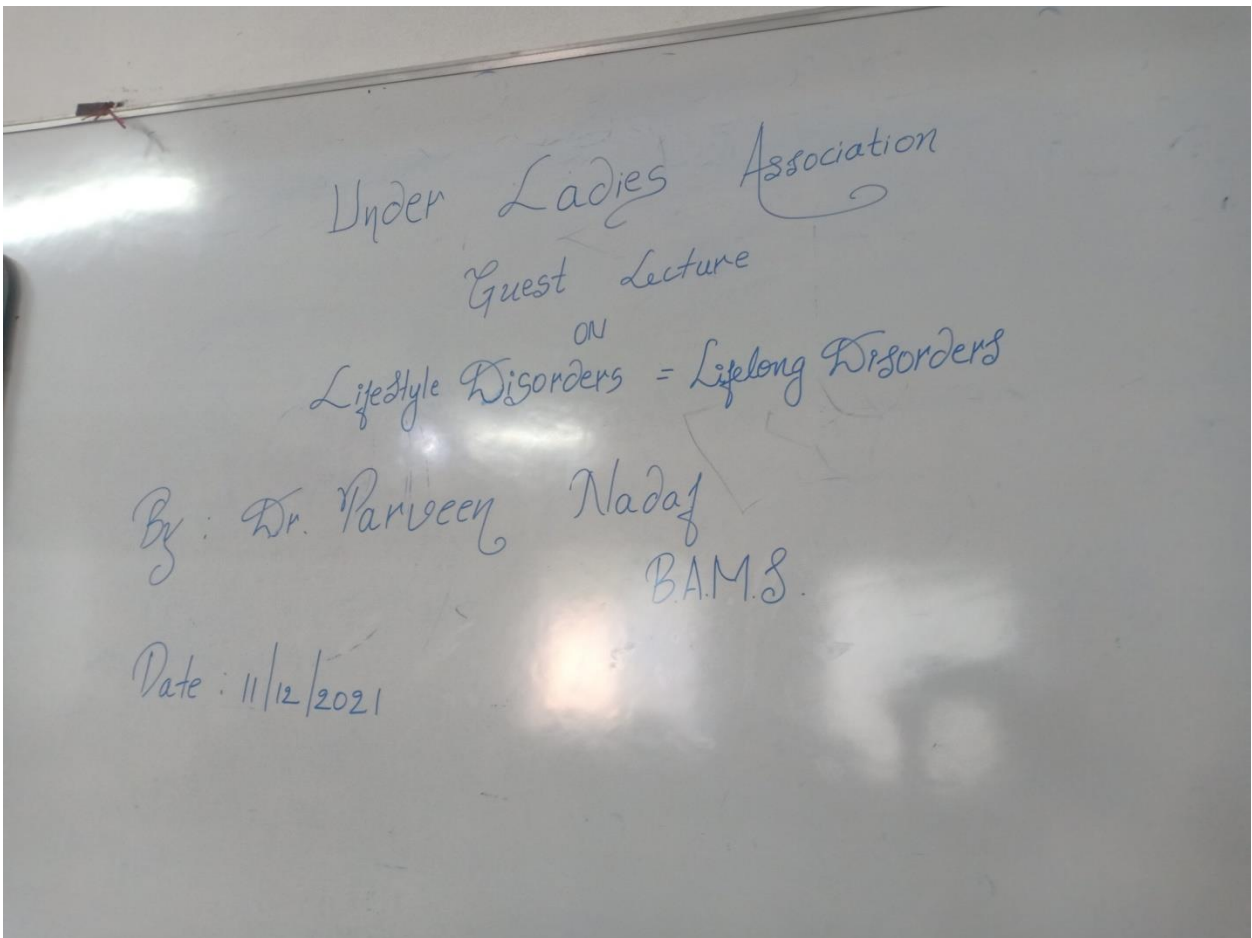 Under Ladies Association
Guest Lecture
ON
Lifestyle Disorders = Lifelong Disorders
By : Dr. Parveen Nadaf
B.A.M.S.
Date : 11/12/2021